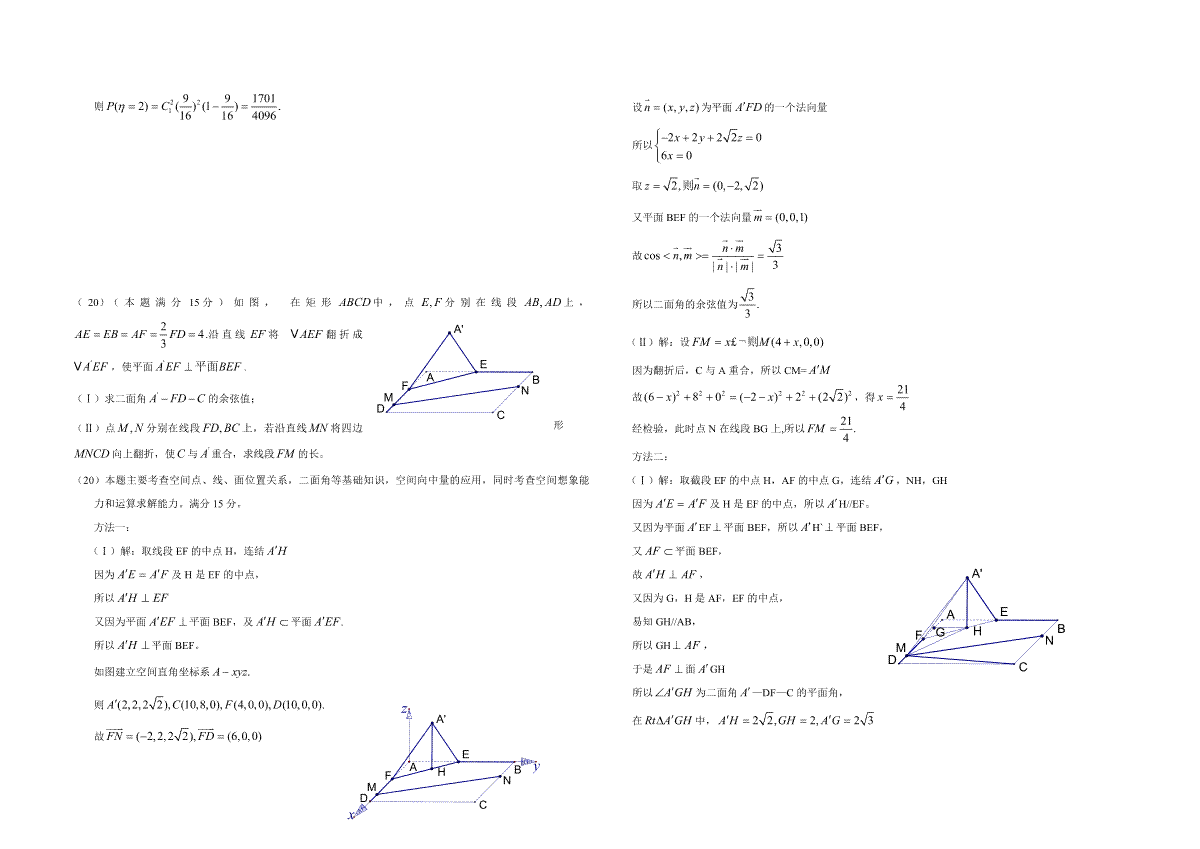 则P(η=2)=C₁²(9/16)²(1−9/16)=1701/4096.
(20)(本题满分15分)如图, 在矩形ABCD中,点E,F分别在线段AB,AD上,
AE=EB=AF=2/3FD=4.沿直线EF将 VAEF翻折成
VA'EF,使平面A'EF⊥平面BEF.
(Ⅰ)求二面角A'−FD−C的余弦值;
(Ⅱ)点M,N分别在线段FD,BC上,若沿直线MN将四边 形
MNCD向上翻折,使C与A'重合,求线段FM的长。
A'
E
A
B
F
N
M
D
C
(20)本题主要考查空间点、线、面位置关系,二面角等基础知识,空间向中量的应用,同时考查空间想象能
力和运算求解能力,满分15分。
方法一:
(Ⅰ)解:取线段EF的中点H,连结A′H
因为A′E=A′F及H是EF的中点,
所以A′H⊥EF
又因为平面A′EF⊥平面BEF,及A′H⊂平面A′EF.
所以A′H⊥平面BEF。
如图建立空间直角坐标系A−xyz.
则A′(2,2,2√2),C(10,8,0),F(4,0,0),D(10,0,0).
故FN=(−2,2,2√2),FD=(6,0,0)
z
A'
E
A
H
B
y
F
N
M
D
C
x
设n=(x,y,z)为平面A′FD的一个法向量
所以{−2x+2y+2√2z=0
6x=0
取z=√2,则n=(0,−2,√2)
又平面BEF的一个法向量m=(0,0,1)
故cos<n,m>=n·m/|n|·|m|=√3/3
所以二面角的余弦值为√3/3.
(Ⅱ)解:设FM=x£¬则M(4+x,0,0)
因为翻折后,C与A重合,所以CM=A′M
故(6−x)²+8²+0²=(−2−x)²+2²+(2√2)²,得x=21/4
经检验,此时点N在线段BG上,所以FM=21/4.
方法二:
(Ⅰ)解:取截段EF的中点H,AF的中点G,连结A′G,NH,GH
因为A′E=A′F及H是EF的中点,所以A′H//EF。
又因为平面A′EF⊥平面BEF,所以A′H`⊥平面BEF,
又AF⊂平面BEF,
故A′H⊥AF,
又因为G,H是AF,EF的中点,
易知GH//AB,
所以GH⊥AF,
于是AF⊥面A′GH
所以∠A′GH为二面角A′—DF—C的平面角,
在RtΔA′GH中,A′H=2√2,GH=2,A′G=2√3
A'
A
E
F
G
H
B
M
N
D
C